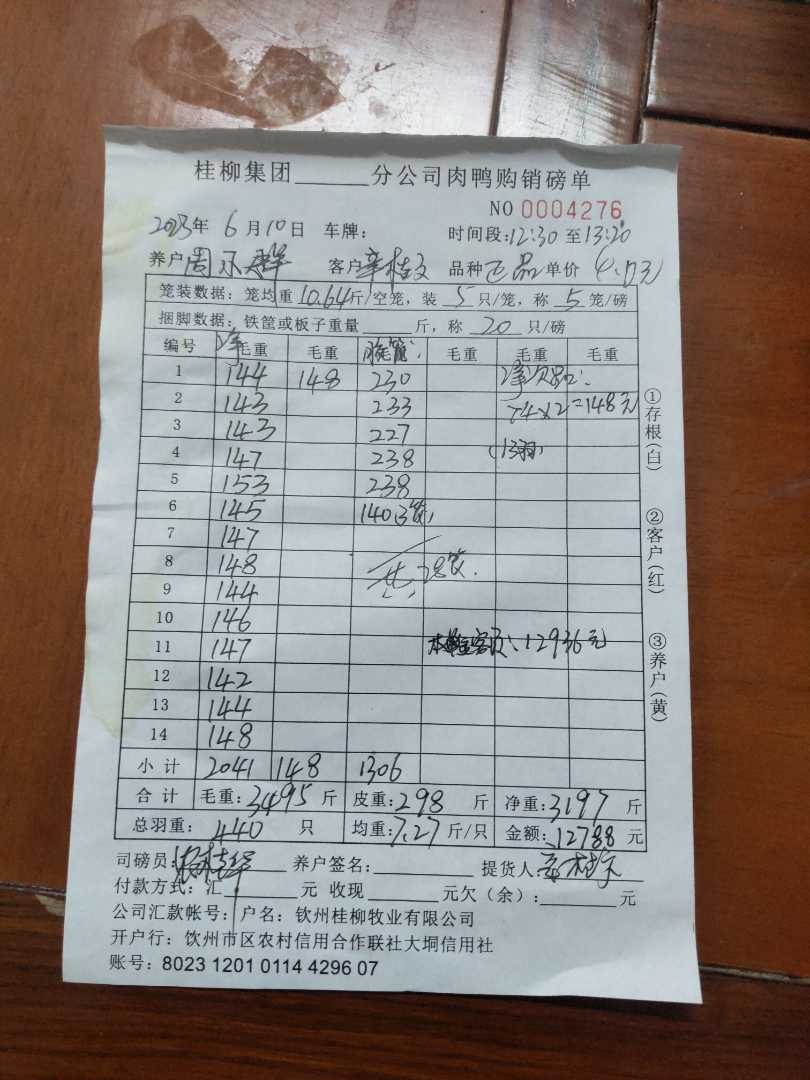 桂柳集团______分公司肉鸭购销磅单
NO 0004276
2023年 6月10日 车牌: 时间段:12:30 至13:20
养户 周 群 客户 辛桂文 品种 正品 单价
笼装数据: 笼均重 10.64斤/空笼, 装 5 只/笼, 称 5 笼/磅
捆脚数据: 铁筐或板子重量____斤, 称 20 只/磅
编号 净毛重 毛重 毛重 毛重 毛重
1 144 148 230 净次品:
2 143 233 74×2=148元
3 143 227
4 147 238 (13羽)
5 153 238
6 145 140(3笼)
7 147
8 148 共28笼.
9 144
10 146
11 147 12936元
12 142
13 144
14 148
小计 2041 148 1306
合计 毛重:3495斤 皮重:298 斤 净重:3197 斤
总羽重: 440 只 均重:7.27斤/只 金额:12788元
司磅员: 养户签名:______ 提货人:
付款方式: 汇______元 收现______元欠(余):______元
公司汇款帐号: 户名: 钦州桂柳牧业有限公司
开户行: 饮州市区农村信用合作联社大垌信用社
账号: 8023 1201 0114 4296 07
①存根(白)
②客户(红)
③养户(黄)